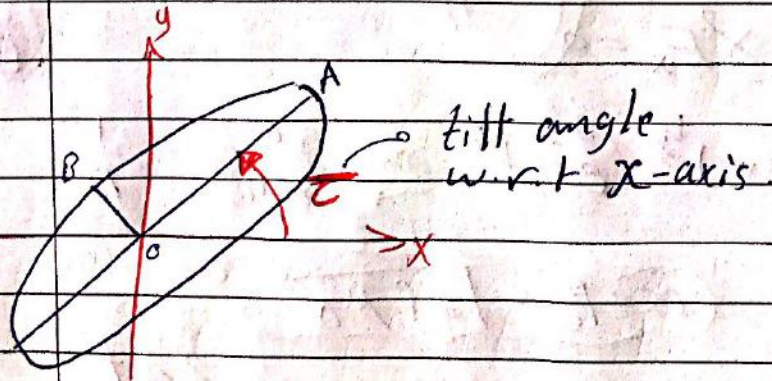 y
A
tilt angle
B
τ
w.r.t x-axis
O
x